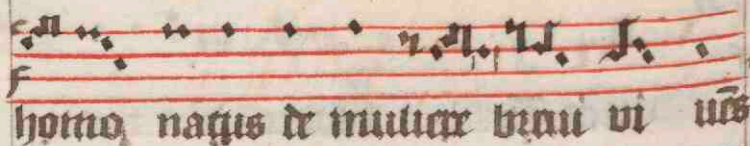 homo natus de muliere breui vi uēs